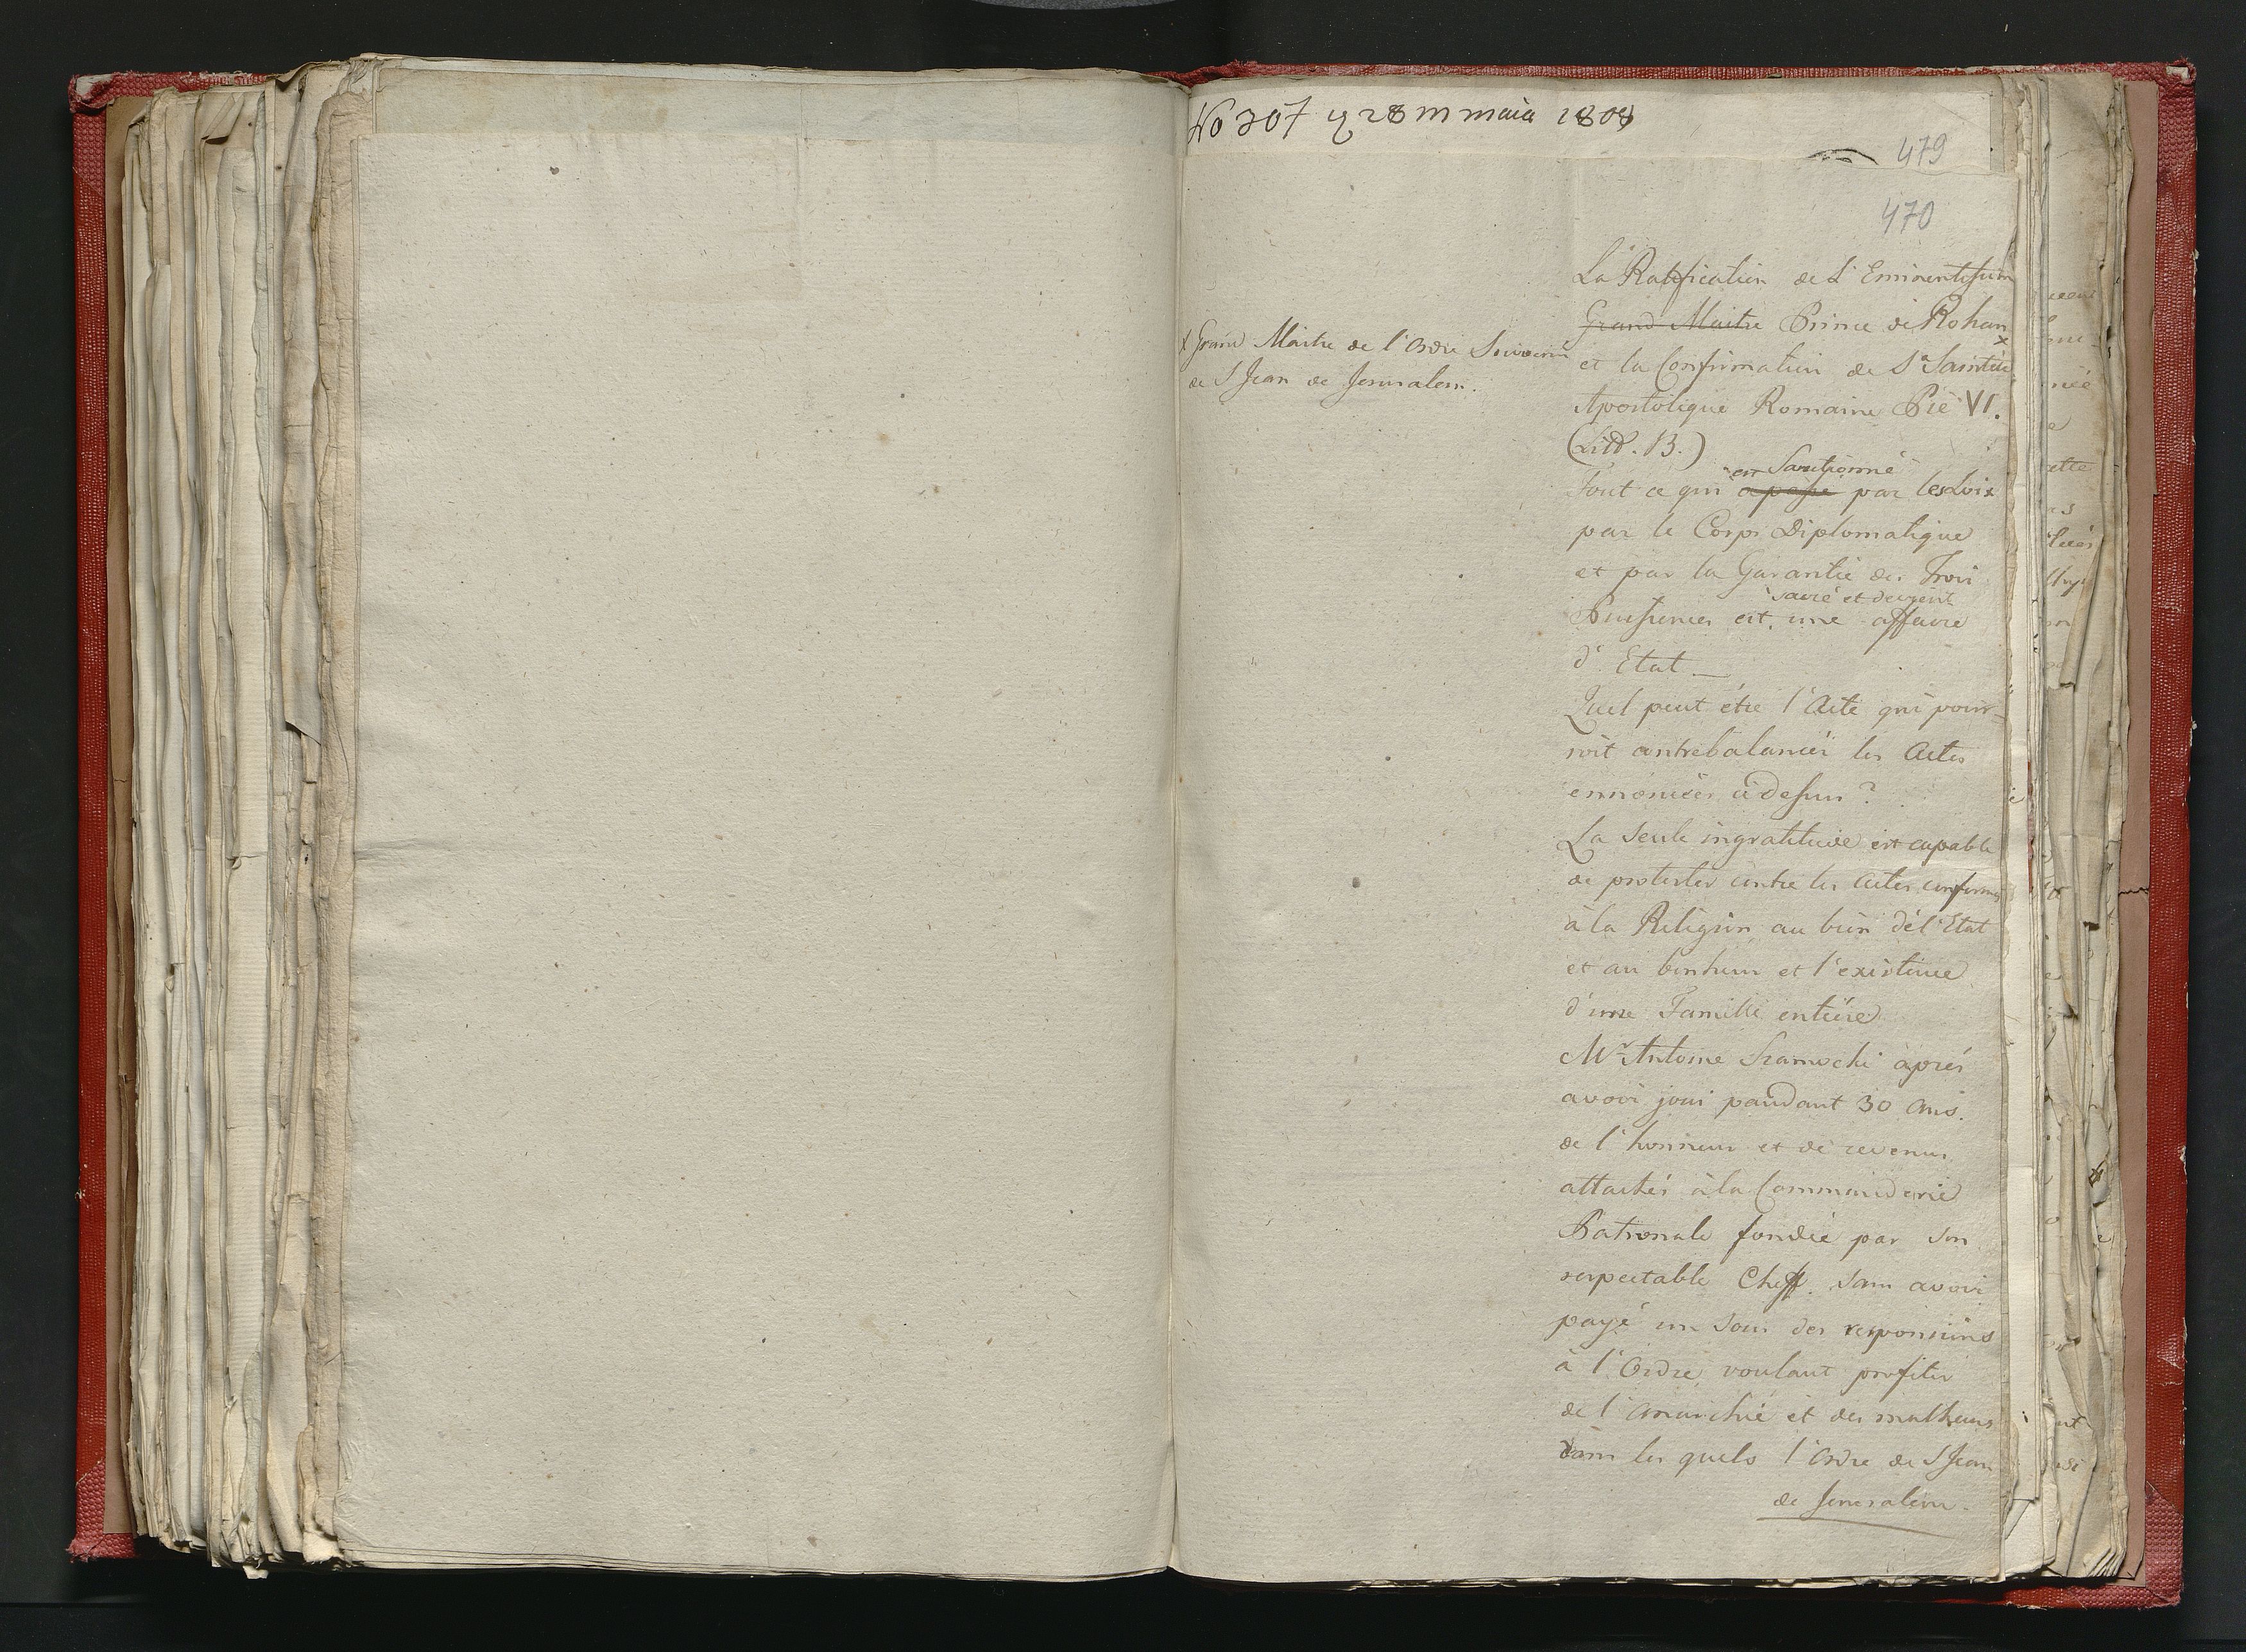 No 307 28 m maia 1808
479
470
La Ratification de L'Eminentissim
Grand Maitre Prince de Rohan x
x Grand Maitre de l'Ordre Souverin
de S Jean de Jerusalem.
et la Confirmation de Sa Sainteté
Apostolique Romaine Pie VI.
(Litt. B.)
est Sanctionné
Tout ce qui a passé par les Loix
par le Corps Diplomatique
et par la Garantie des Trois
sacré et devient
Puissences est une affaire
d'Etat —
Quel peut étre l'Acte qui pour-
roit contrebalancér les Actes
ennoncés cidessus?
La Seule ingratitude est capable
de protester contre les Actes conformes
à la Religion au bien dél'Etat
et au bonheur et l'existence
d'une Famille entiére
Mr Antoine Sramochi aprés
avoir joui pandant 30 Ans.
de l'honneur et de revenus
attachés à la Commanderie
Patronale fondée par son
respectable Cheff. Sans avoir
payé un Sous des responsions
à l'Ordre, voulant profiter
de l'anarchie et des malheurs
dans les quels l'Ordre de S Jean
de Jerusalem.